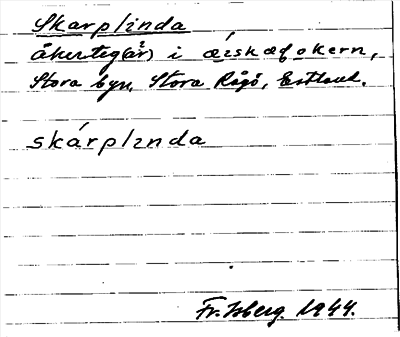 Skarplinda
åkerteg(ar) i œ́ɩskœfokern,
Stora byn, Stora Rågö, Estland.
skárplɩnda
Fr. Isberg. 1944.